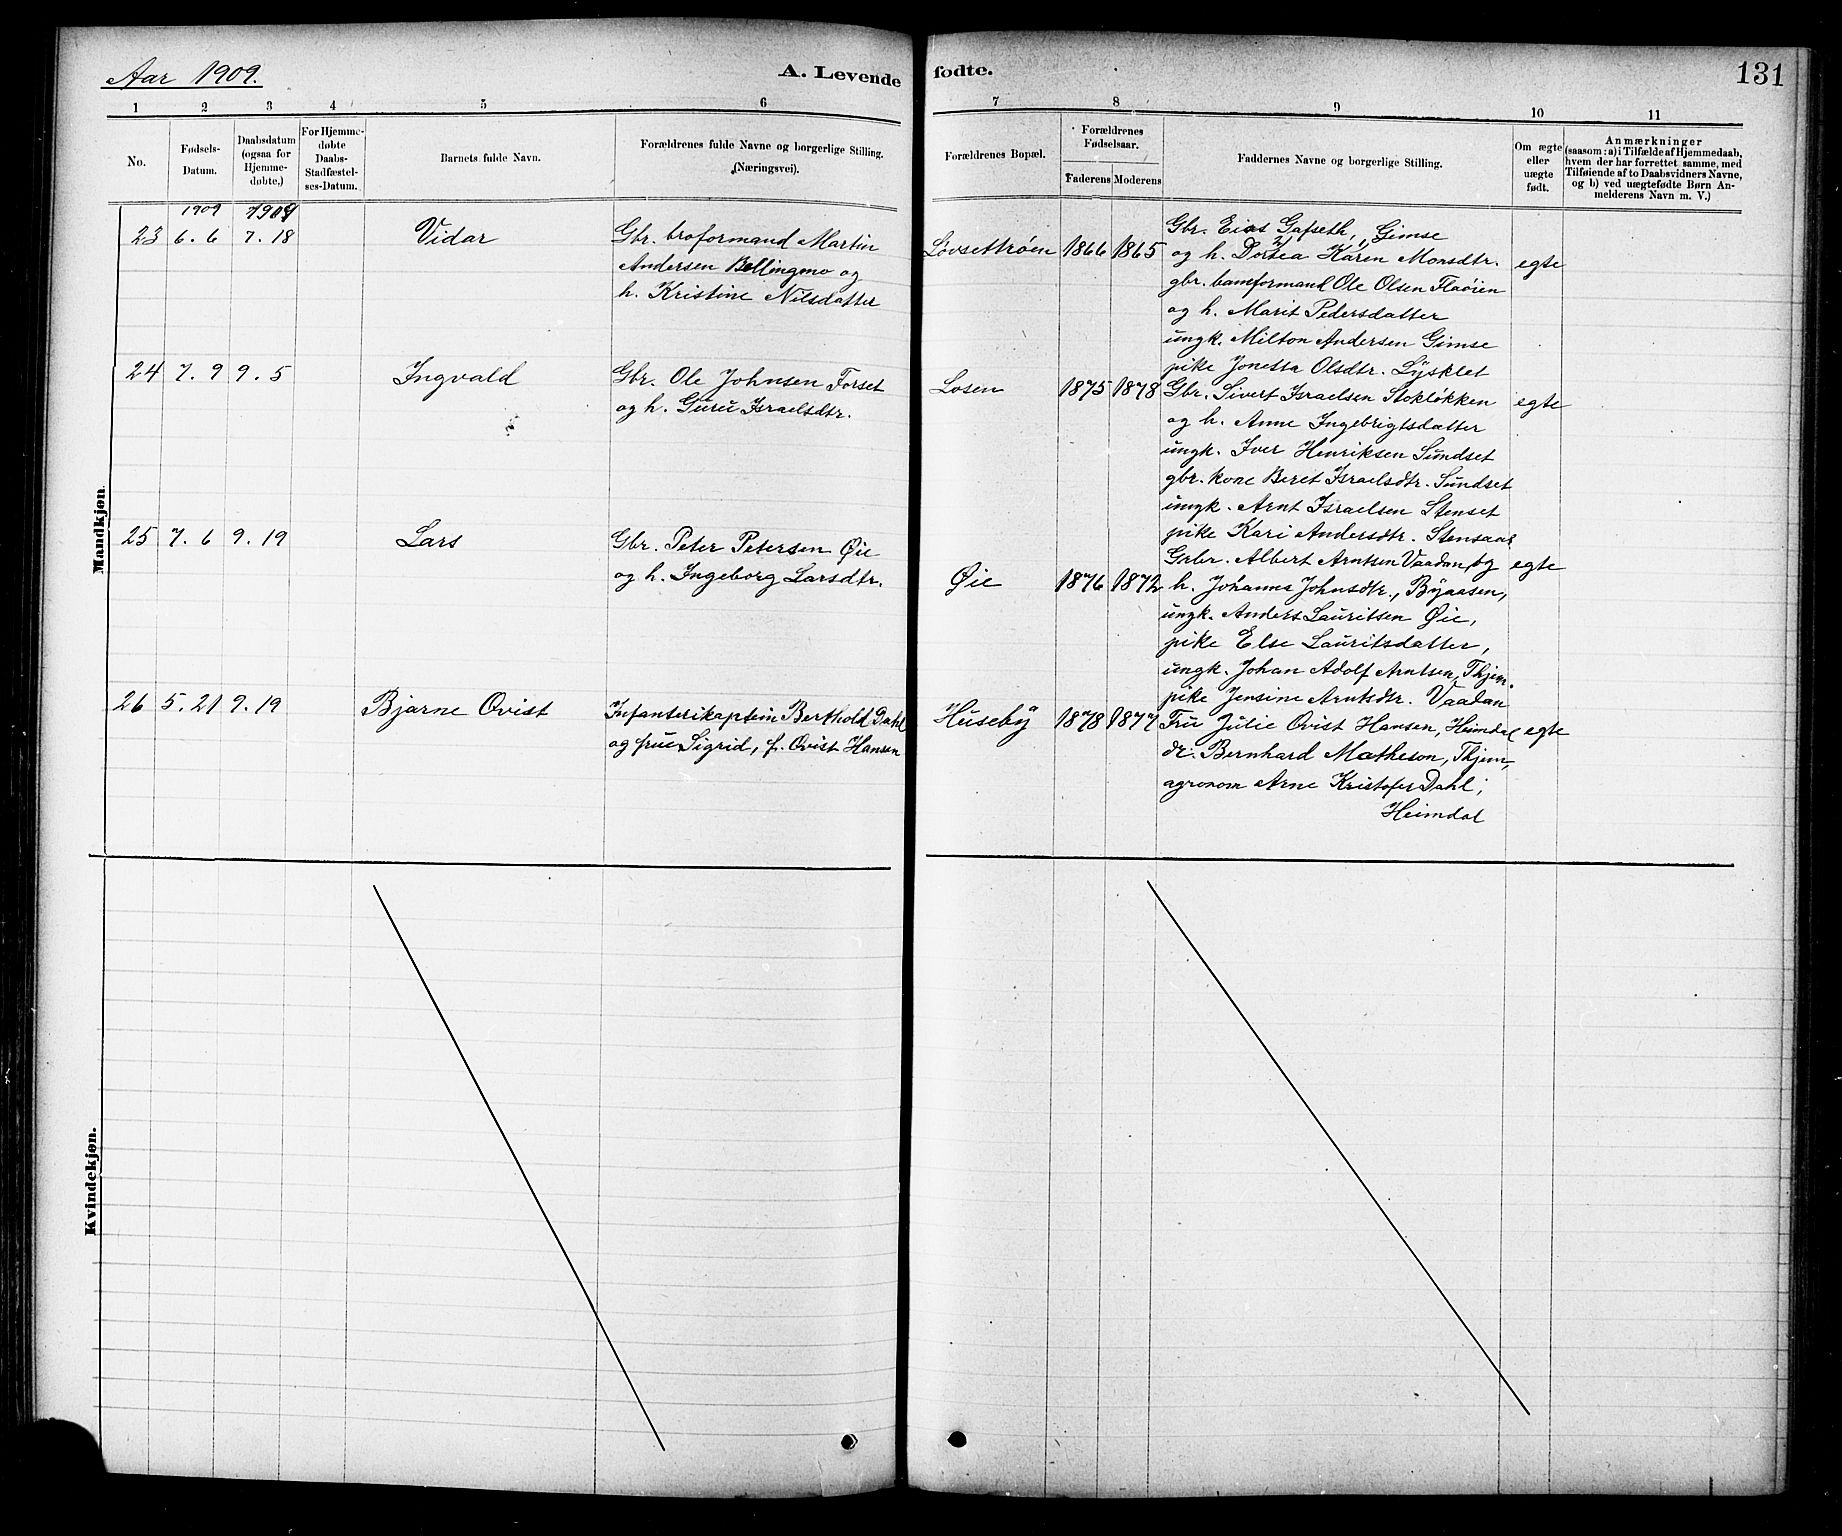 Aar 1909.
A. Levende fodte.
131
1 2 3 4 5 6 7 8 9 10 11
No.
Fødsels-
Datum.
Daabsdatum
(ogsaa for
Hjemme-
døbte.)
For Hjemme-
døbte
Daabs-
Stadfæstel-
ses-Datum.
Barnets fulde Navn.
Forældrenes fulde Navne og borgerlige Stilling.
(Næringsvei).
Forældrenes Bopæl.
Forældrenes
Fødselsaar.
Faderens Moderens
Faddernes Navne og borgerlige Stilling.
Om ægte
eller
uægte
født.
Anmærkninger
(saasom: a) i Tilfælde af Hjemmedaab,
hvem der har forrettet samme, med
Tilføiende af to Daabsvidners Navne,
og b) ved uægtefødte Børn An-
melderens Navn m. V.)
Mandkjøn.
1909 1909
23 6.6 7.18 Vidar
Gbr. broformand Martin
Andersen Bollingmo og
h. Kristine Nilsdatter
Løvsettrøen 1866 1865
Gbr. Eias Gafseth, Gimse
og h. Dortea Karen Monsdtr.
gbr. bamformand Ole Olsen Flaøien
og h. Marit Pedersdatter
ungk. Milton Andersen Gimse
pike Jonetta Olsdtr. Lysklet
egte
24 7.9 9.5 Ingvald
Gbr. Ole Johnsen Forset
og h. Guru Israelsdtr.
Losen 1875 1878
Gbr. Sivert Israelsen Stokløkken
og h. Anne Ingebrigtsdatter
ungk. Iver Henriksen Sundset
gbr. kone Beret Israelsdtr. Sundset
ungk. Arnt Israelsen Stenset
pike Kari Andersdtr. Stensaas
egte
25 7.6 9.19 Lars
Gbr. Peter Petersen Øie
og h. Ingeborg Larsdtr.
Øie 1876 1872
Grbr. Albert Arntsen Vaadan og
h. Johanna Johnsdtr., Byaasen,
ungk. Anders Lauritsen Øie,
pike Else Lauritsdatter,
ungk. Johan Adolf Arntsen, Thjem.
pike Jensine Arntsdtr. Vaadan
egte
26 5.21 9.19 Bjarne Qvist
Infanterikaptein Berthold Dahl
og frue Sigrid, f. Qvist Hansen
Huseby 1878 1877
Fru Julie Qvist Hansen, Heimdal
dr. Bernhard Matheson, Thjem,
agronom Arne Kristofer Dahl,
Heimdal
egte
Kvindekjøn.